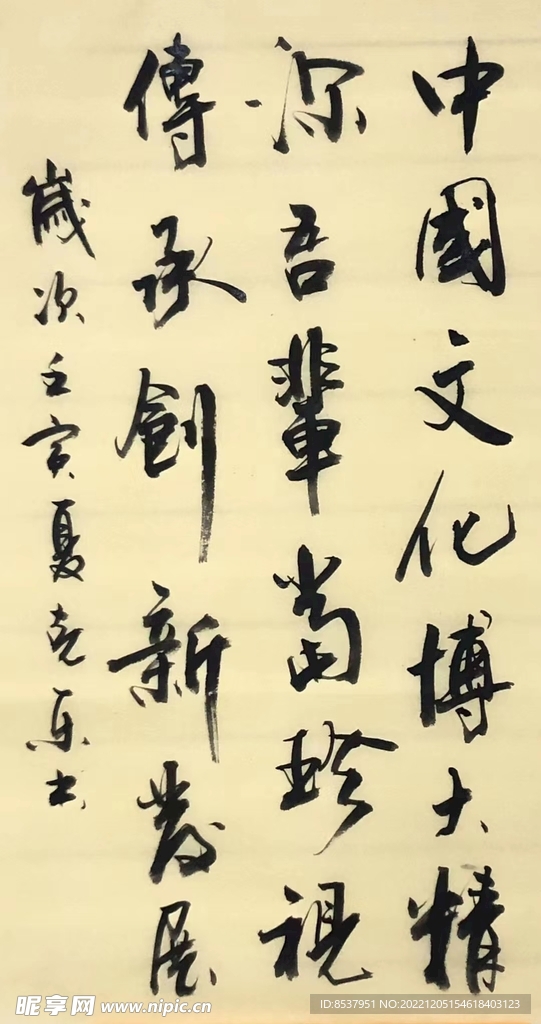 中國文化博大精
深吾輩當珍視
傳承創新發展
歲次壬寅夏克东书
昵享网 www.nipic.cn
ID:8537951 NO:20221205154618403123